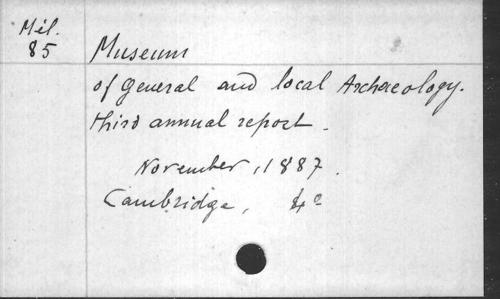 Mél.
85
Museum
of general and local Archæology.
third annual report.
November, 1887.
Cambridge, 4º